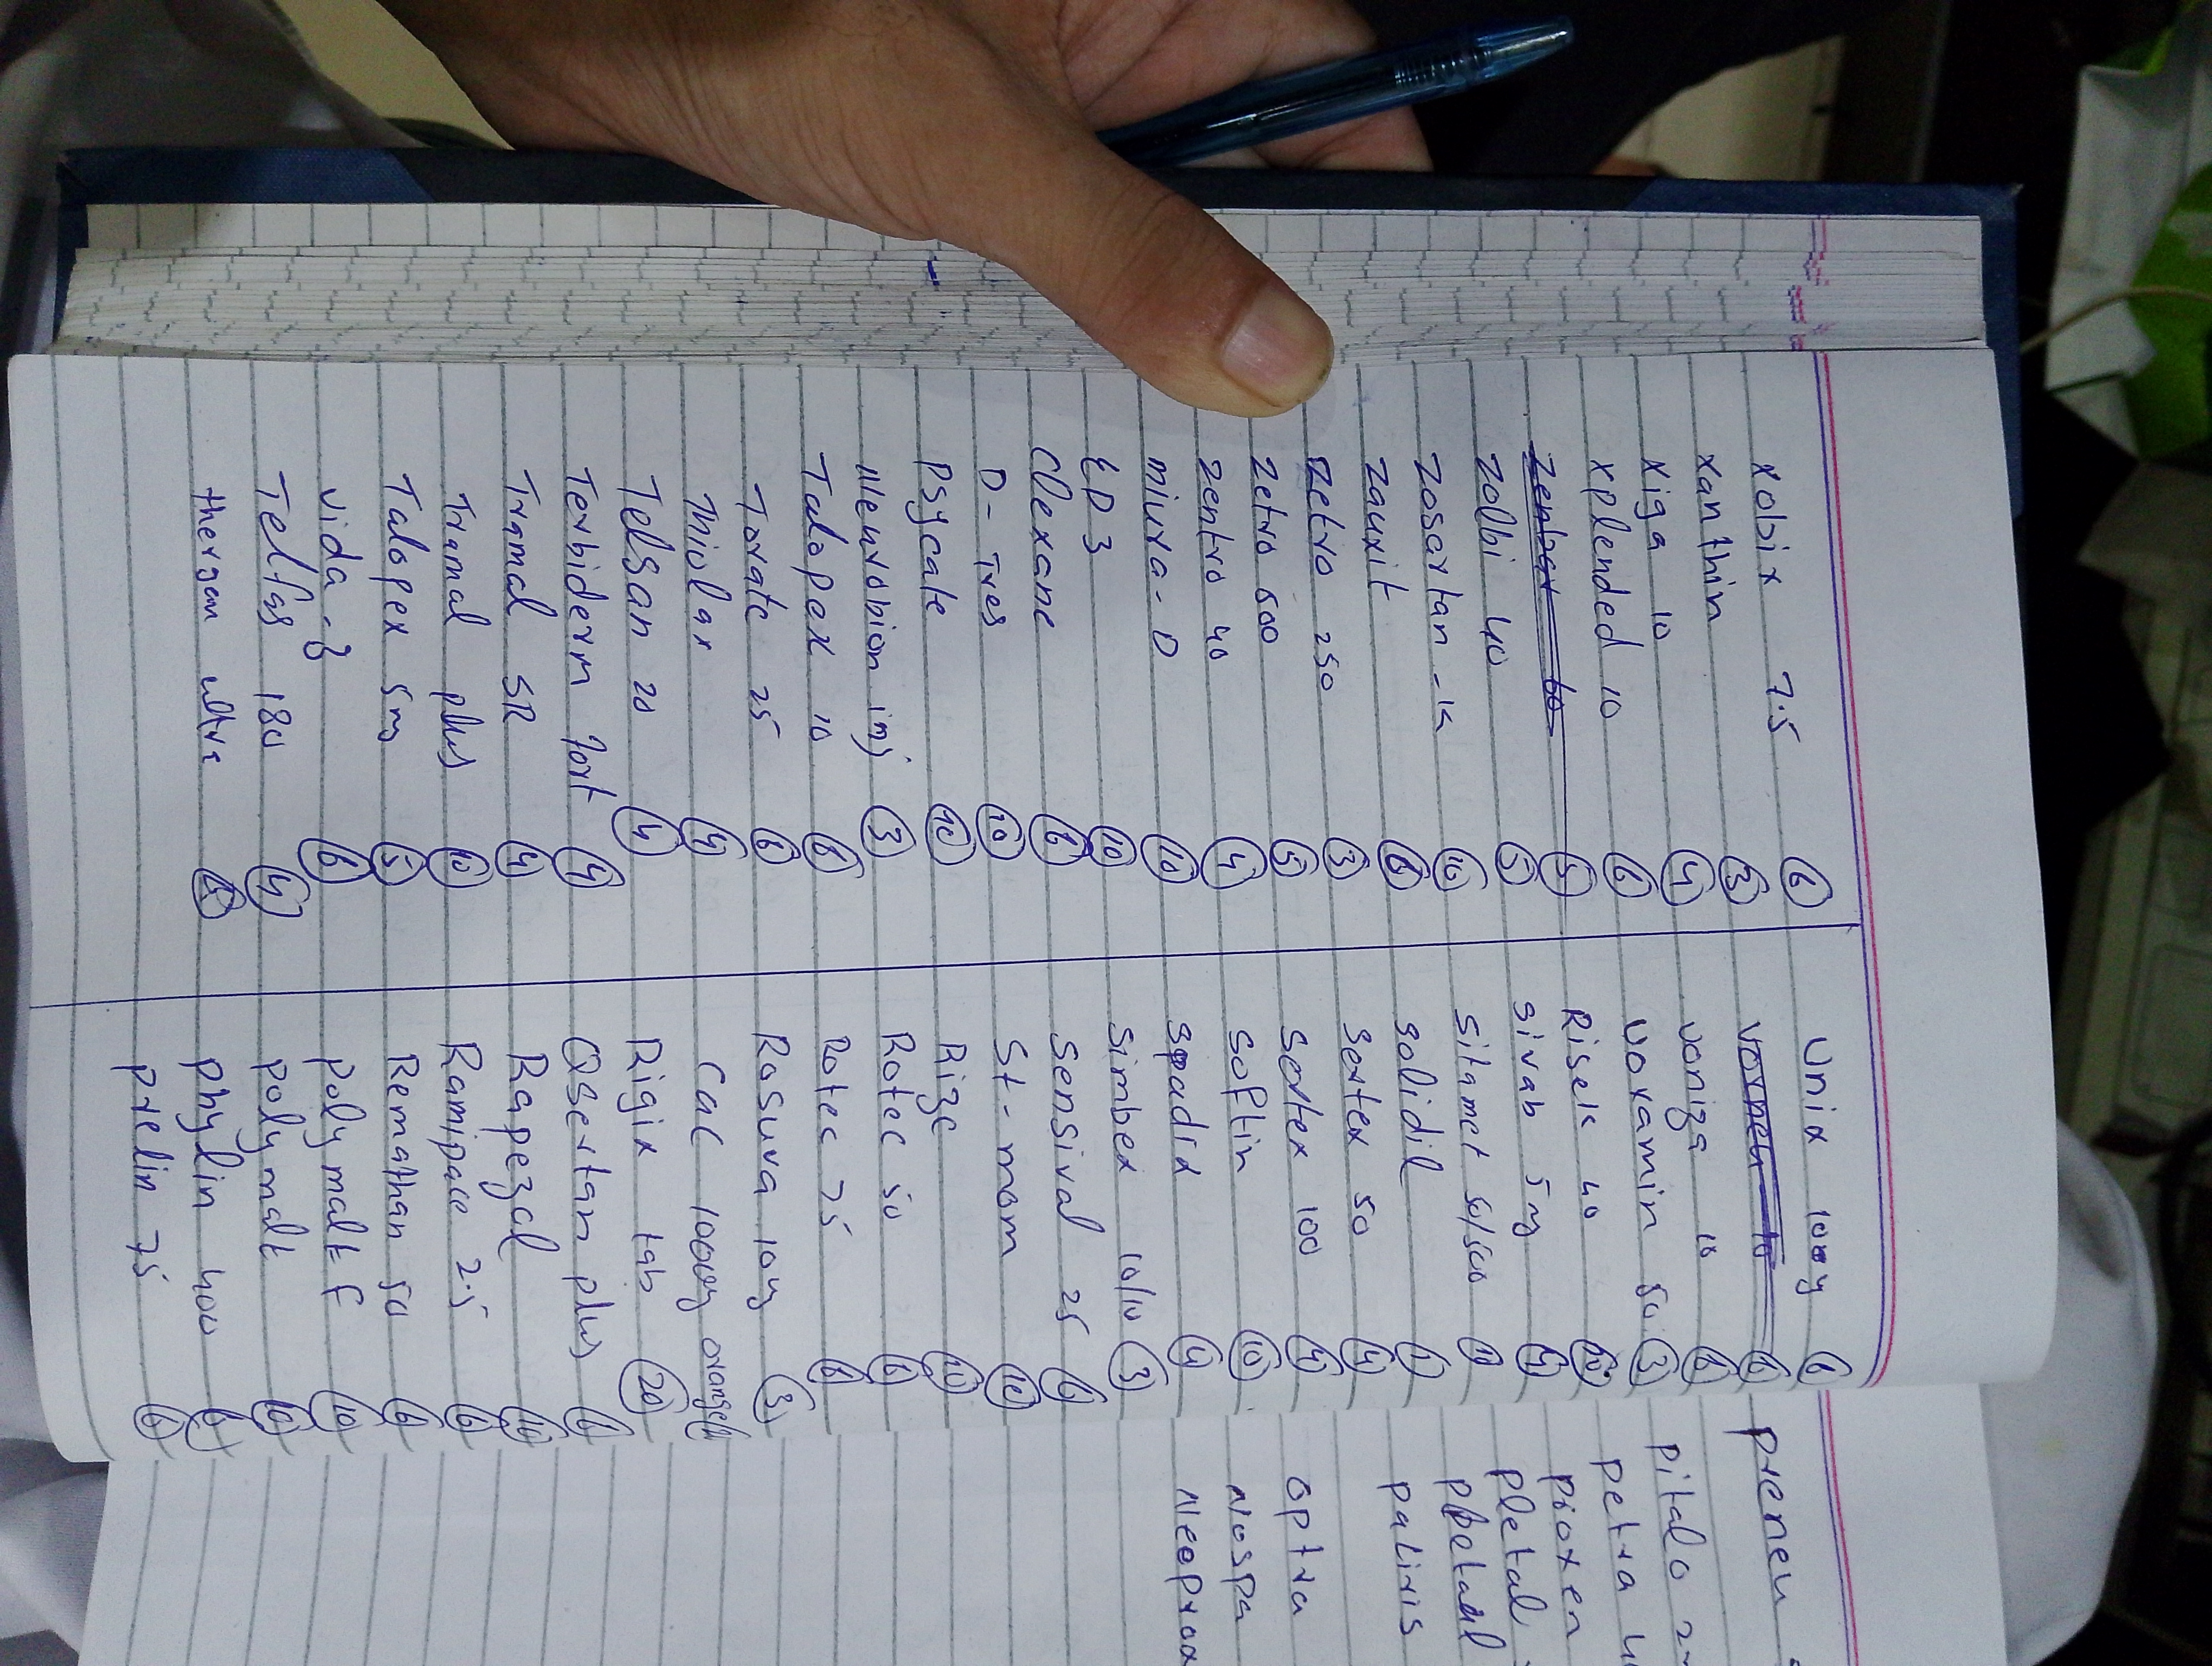 Xobix 7.5 6
Xanthin 3
Xiga 10 4
Xplended 10 6
5
Zolbi 40 5
Zosartan-K 10
Zauxit 6
Zetro 250 3
Zetro 500 5
Zentro 40 4
Miura-D 10
LD3 10
Clexane 6
D-Tres 10
Psycate 10
Neurobion inj 3
Talopex 10 6
Torate 25 6
Thiolax 4
Telsan 20 4
Terbiderm fort 4
Tramal SR 4
Tramal plus 10
Talopex 5mg 5
Vida-Z 6
Telfas 180 4
Theragran ultra
Unix 10mg 6
6
Voniza 10 6
Voxamin 50 3
Risek 40
Sivab 5mg 4
Sitamet 50/500
Solidil
Sertex 50 4
Sertex 100 4
Softin 10
Spadix 4
Simbex 10/10 3
Sensival 25 6
St-mom 10
Rize 10
Rotec 50 6
Rotec 75 6
Rosuva 10mg 3
Cac 1000mg orange
Rigix tab 20
Osertan plus 6
Rapezol
Ramipace 2.5 6
Remathan 50 6
Polymalt F 10
Polymalt 10
Phylin 400
Prelin 75 6
Preneu
Pitalo
Petra
Pioxen
Pletal
Paliris
Optra
Nospa
Neoprox